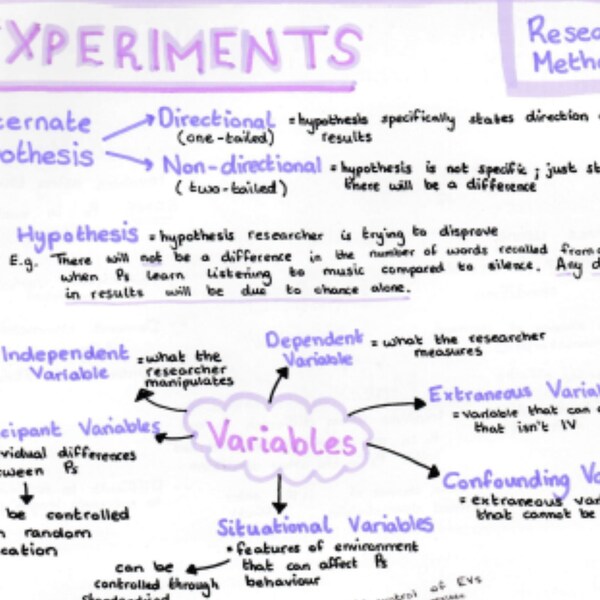 XPERIMENTS
Resea
Metho
ternate
othesis
Directional = hypothesis specifically states direction
(one-tailed) results
Non-directional = hypothesis is not specific ; just st
(two-tailed) there will be a difference
Hypothesis = hypothesis researcher is trying to disprove
E.g. There will not be a difference in the number of words recalled from
when Ps learn listening to music compared to silence. Any d
in results will be due to chance alone.
Independent
Variable
= what the
researcher
manipulates
Dependent
Variable
= what the researcher
measures
Extraneous Variab
= variable that can
that isn't IV
cipant Variables
vidual differences
ween Ps
be controlled
random
cation
Variables
Confounding Va
= extraneous var
that cannot be
Situational Variables
• features of environment
that can affect Ps
behaviour
can be
controlled through
standardised
control of EVs